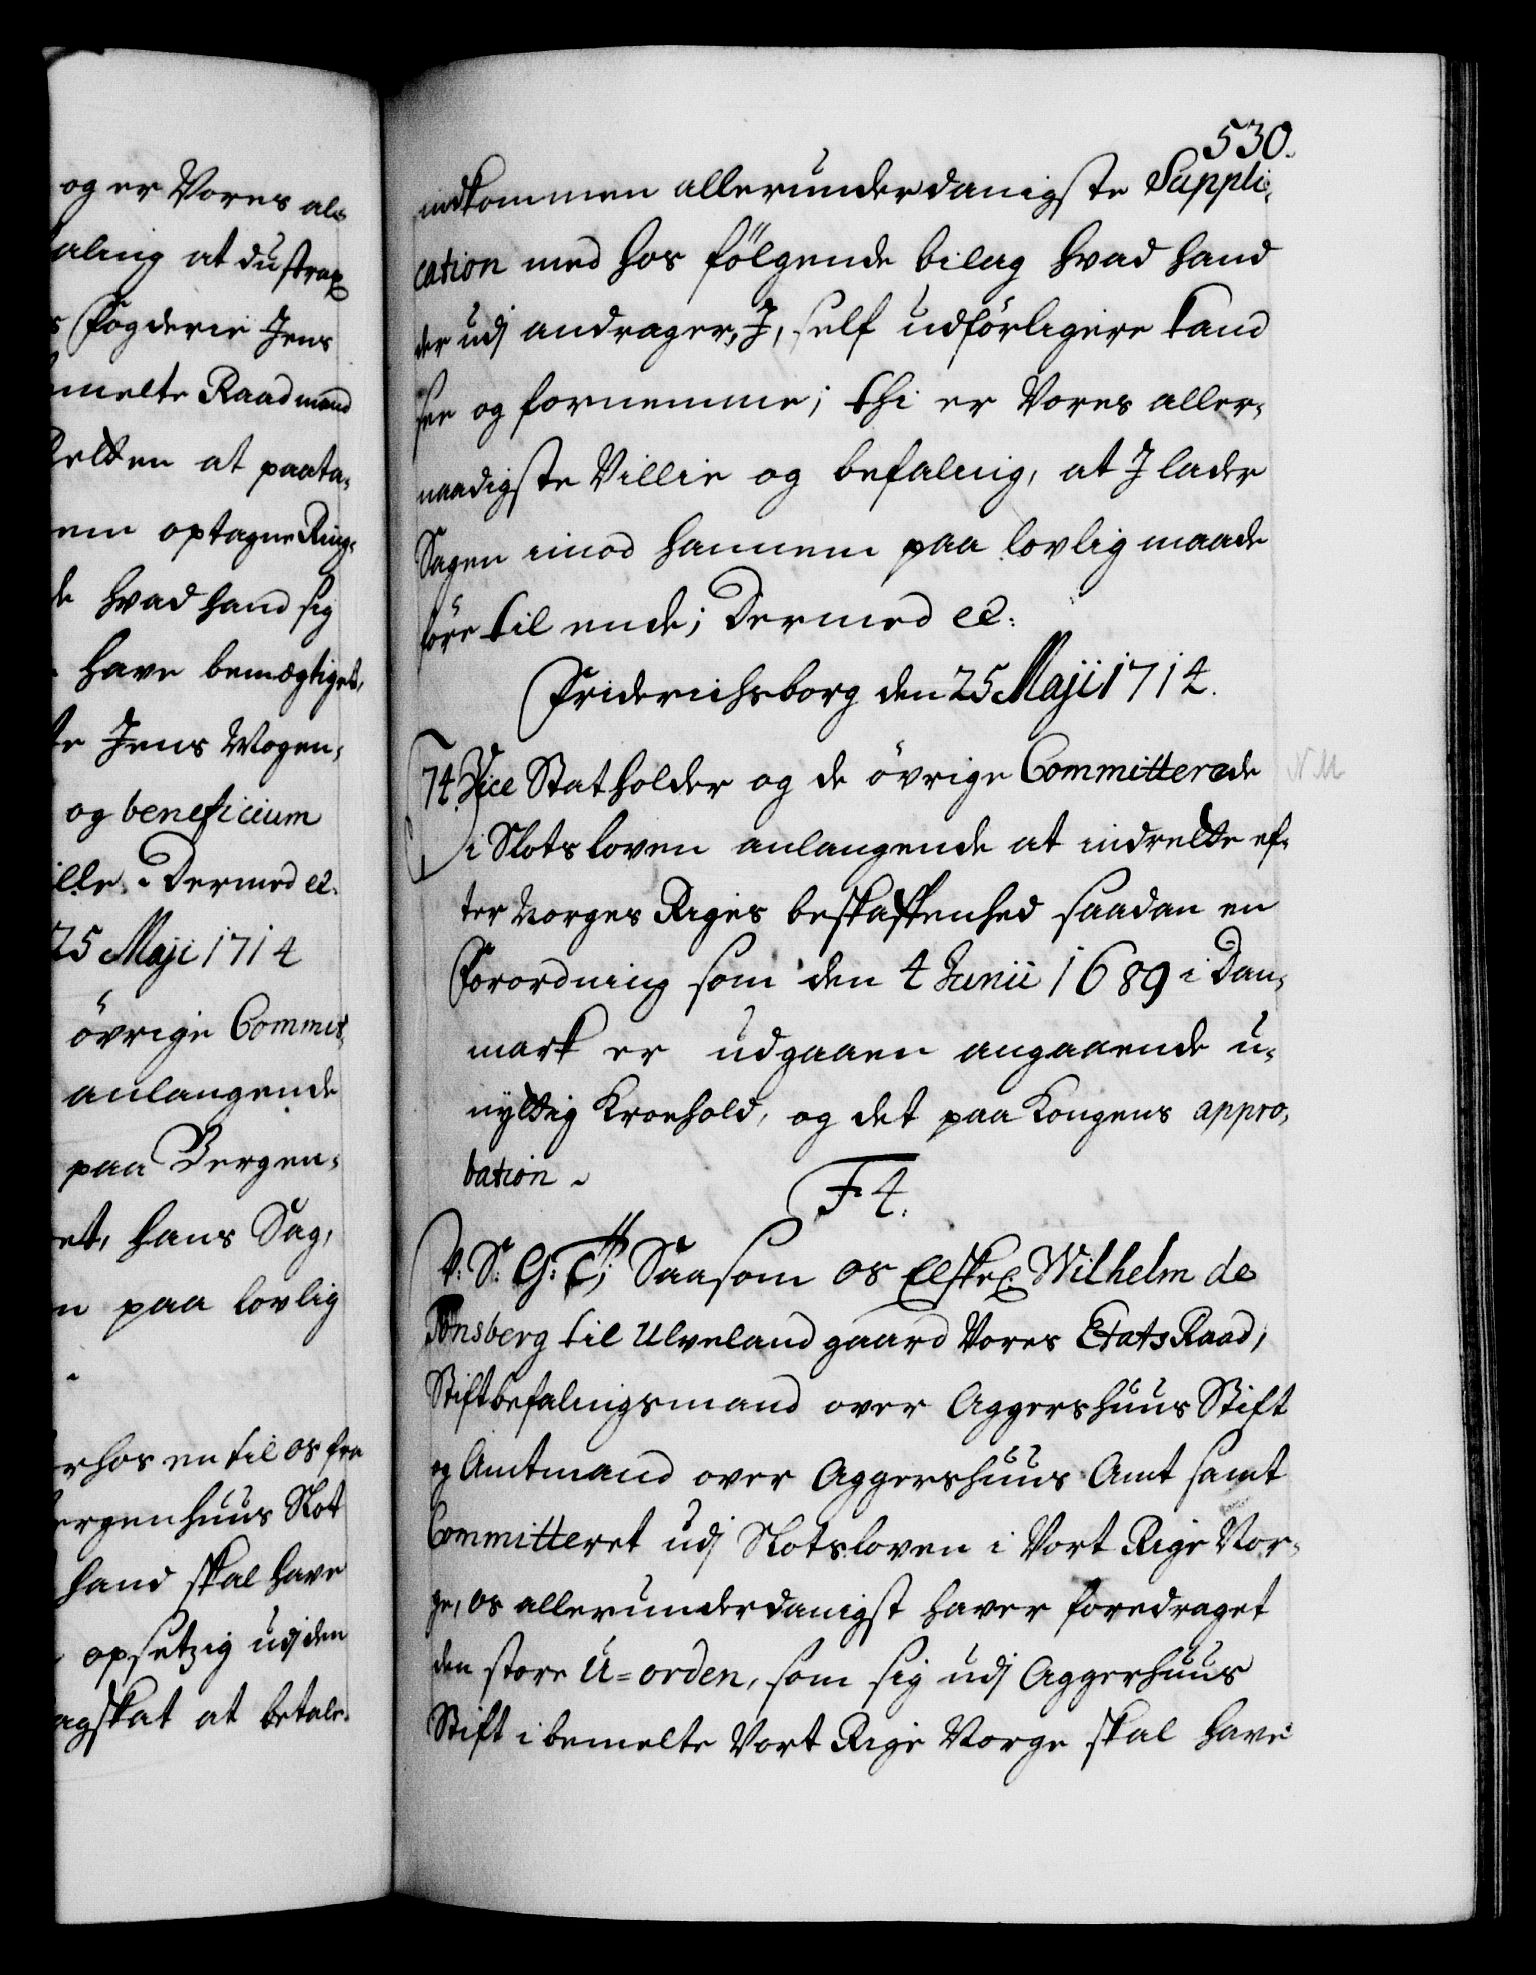 og er Vores al¬
aling at du strax
s Fogderie Jens
melte Raadmand
Retten at paata¬
em optagne Ring¬
de hvad hand sig
have bemægtiget,
te Jens Wogen¬
og beneficium
ille. Dermed ec.
25 Maji 1714
övrige Commit¬
anlangende
paa Bergen¬
et, hans Sag,
n paa lovlig
rhos en til os fra
ergenhuus Slot
hand skal have
opsetzig udj den
agskat at betale.
530.
indkommen allerunderdanigste Suppli¬
cation med hos fölgende bilag hvad hand
der udj andrager, J, self udförligere kand
see og fornemme; thi er Vores aller¬
naadigste Villie og befaling, at J lader
Sagen imod hannem paa lovlig maade
före til ende; Dermed ec:
Friderichsborg den 25 Maji 1714.
74. Vice Statholder og de övrige Committerede
i Slotsloven anlangende at indrette ef¬
ter Norges Riges beskaffenhed saadan en
Forordning som den 4 Junii 1689 i Dan¬
mark er udgaaen angaaende u¬
nyttig Kroehold, og det paa Kongens appro¬
bation.
F 4.
V: S: G: T; Saasom os Elskel: Wilhelm de
Tonsberg til Ulveland gaard Vores Etats Raad,
Stiftbefalingsmand over Aggershuus Stift
og Amtmand over Aggershuus Amt samt
Committeret udj Slotsloven i Vort Rige Nor¬
ge, os allerunderdanigst haver foredraget
den store U=orden, som sig udj Aggerhuus
Stift i bemelte Vort Rige Norge skal have